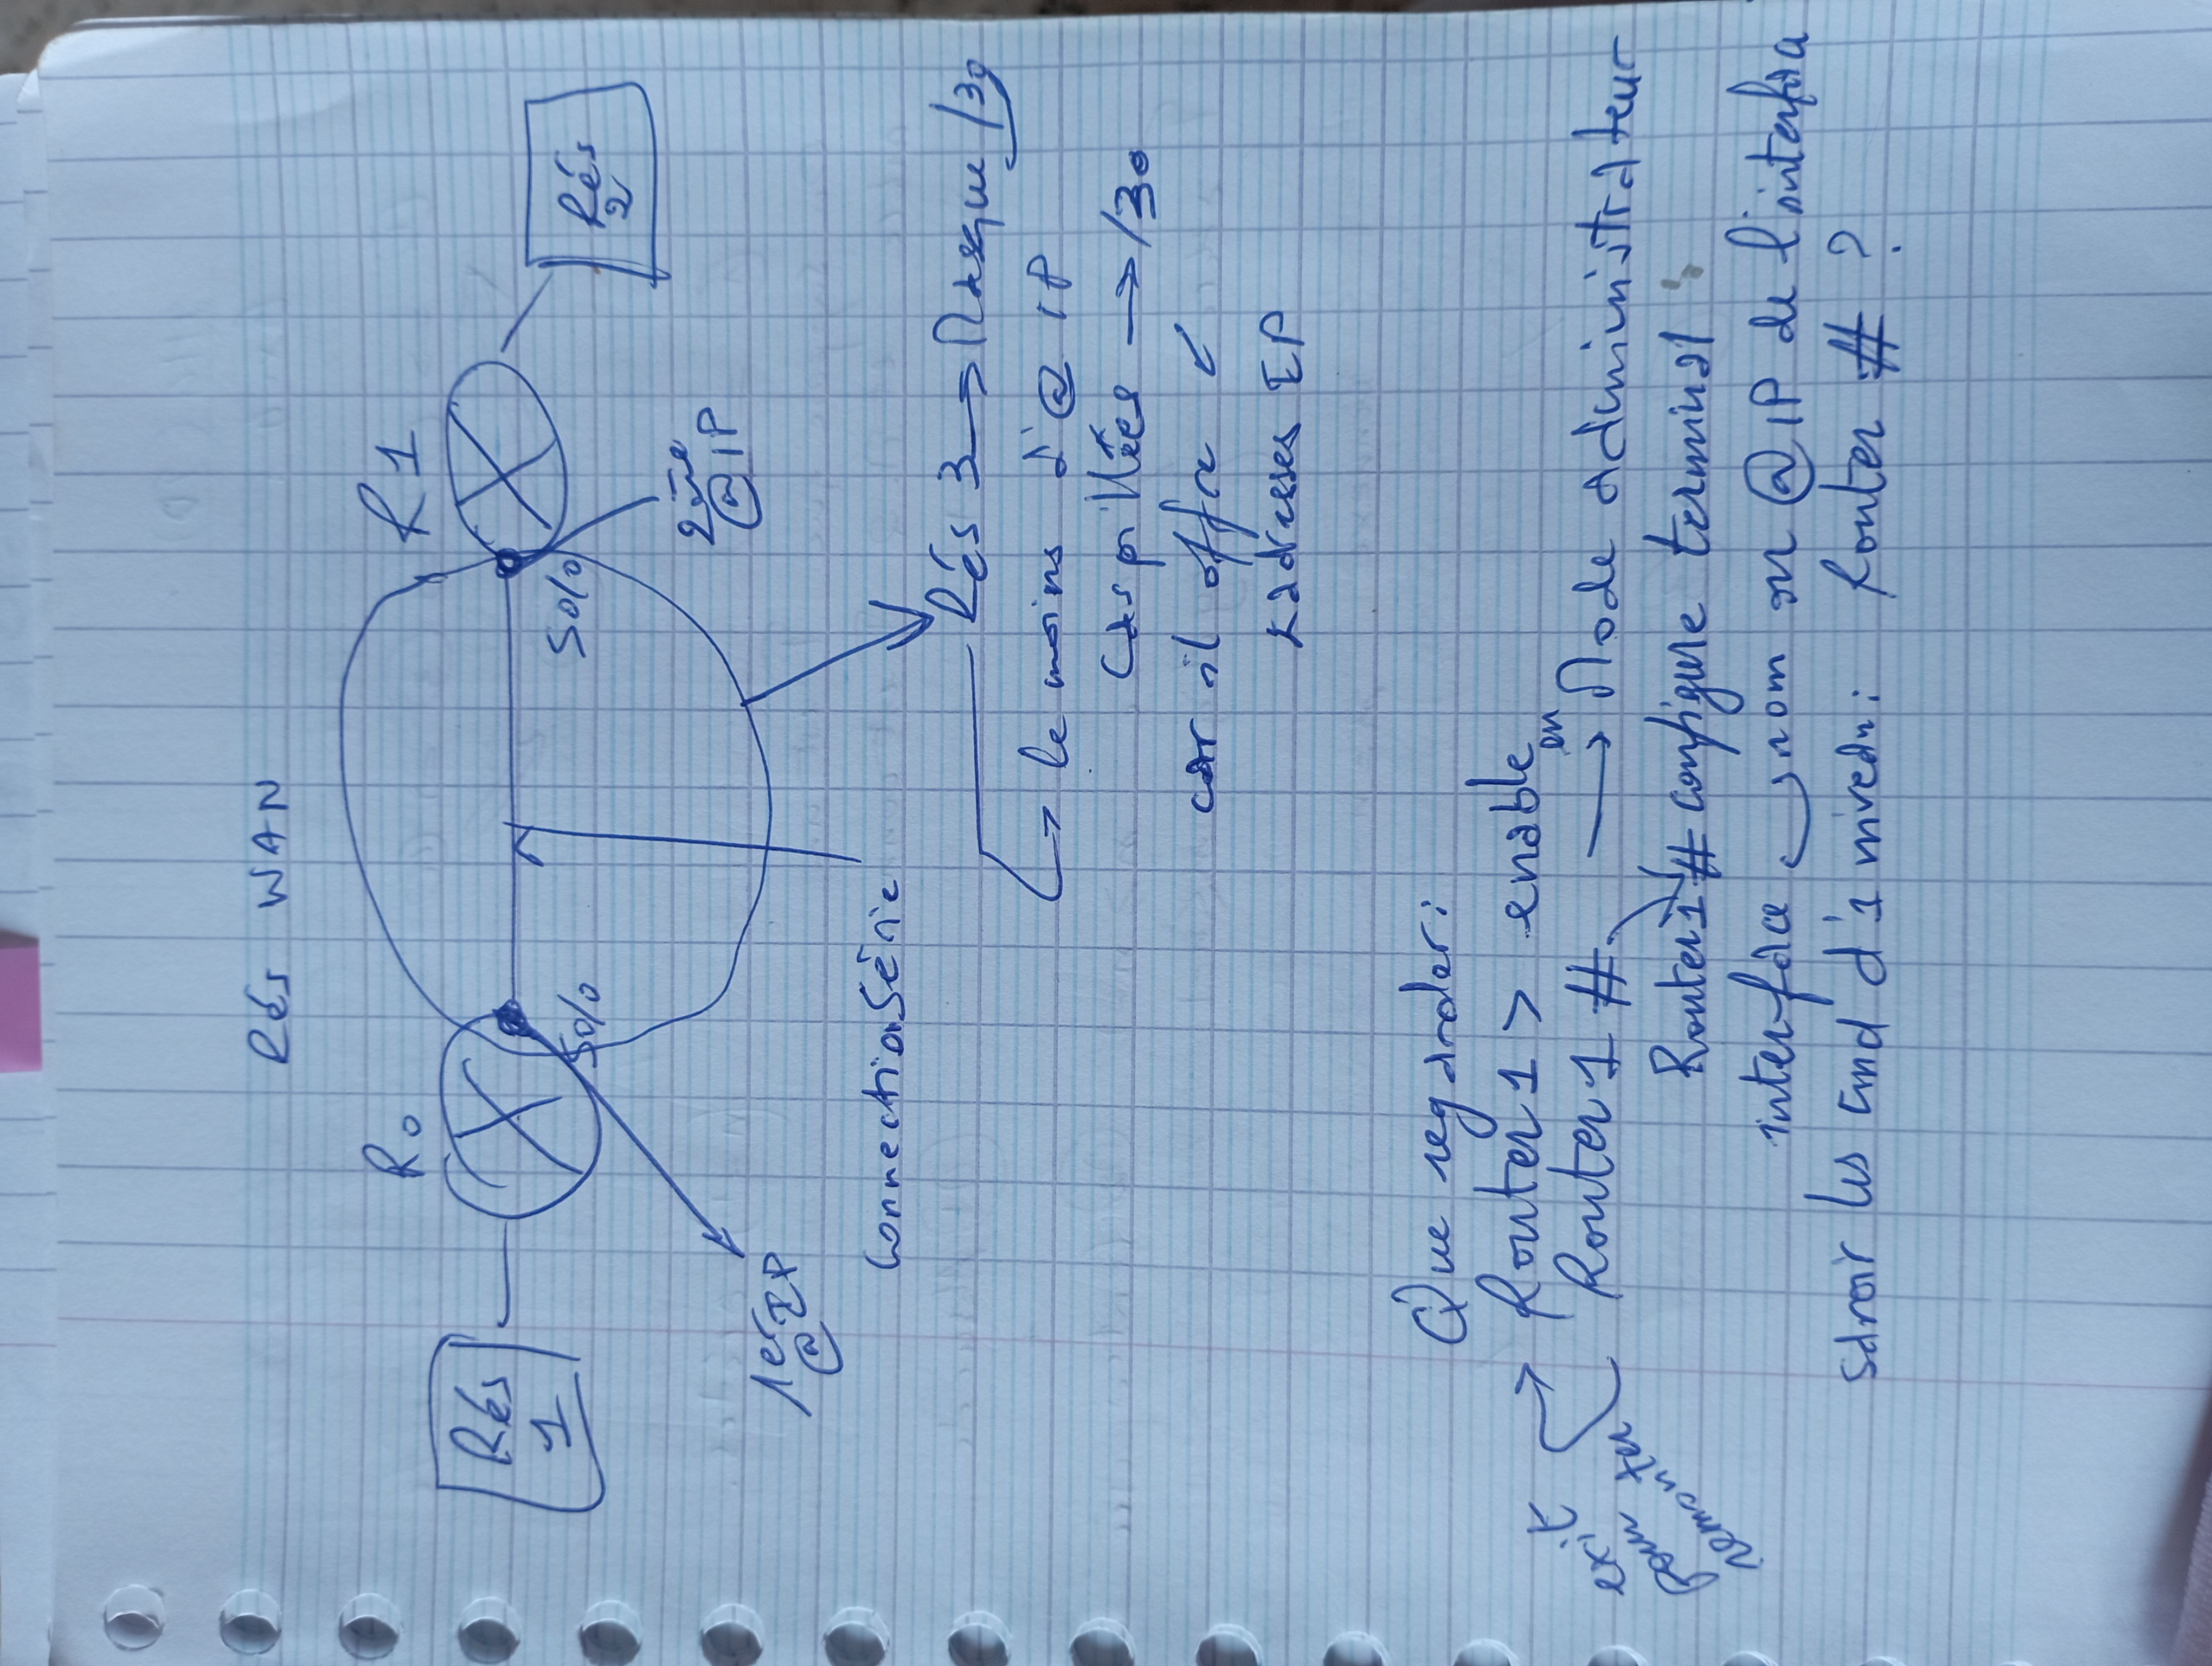 Rés WAN
R0
R1
Rés
1
S0/0
S0/0
Rés
2
1er
@ IP
2ème
@ IP
Connection Série
Rés 3 → Masque /30
→ le moins d'@ IP
Gaspillées → /30
car il offre
adresses IP
Que regarder :
Router1 > enable
Router1 # → en Mode administrateur
exit
pour
remonter
Router1 # configure terminal
interface nom ou @ IP de l'interface
savoir les cmd d'1 niveau : Router # ?